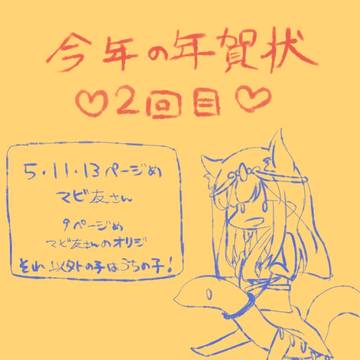 今年の年賀状
♡2回目♡
5・11・13ページめ
マビ友さん
9ページめ
マビ友さんのオリジ
それ以外の子はうちの子!